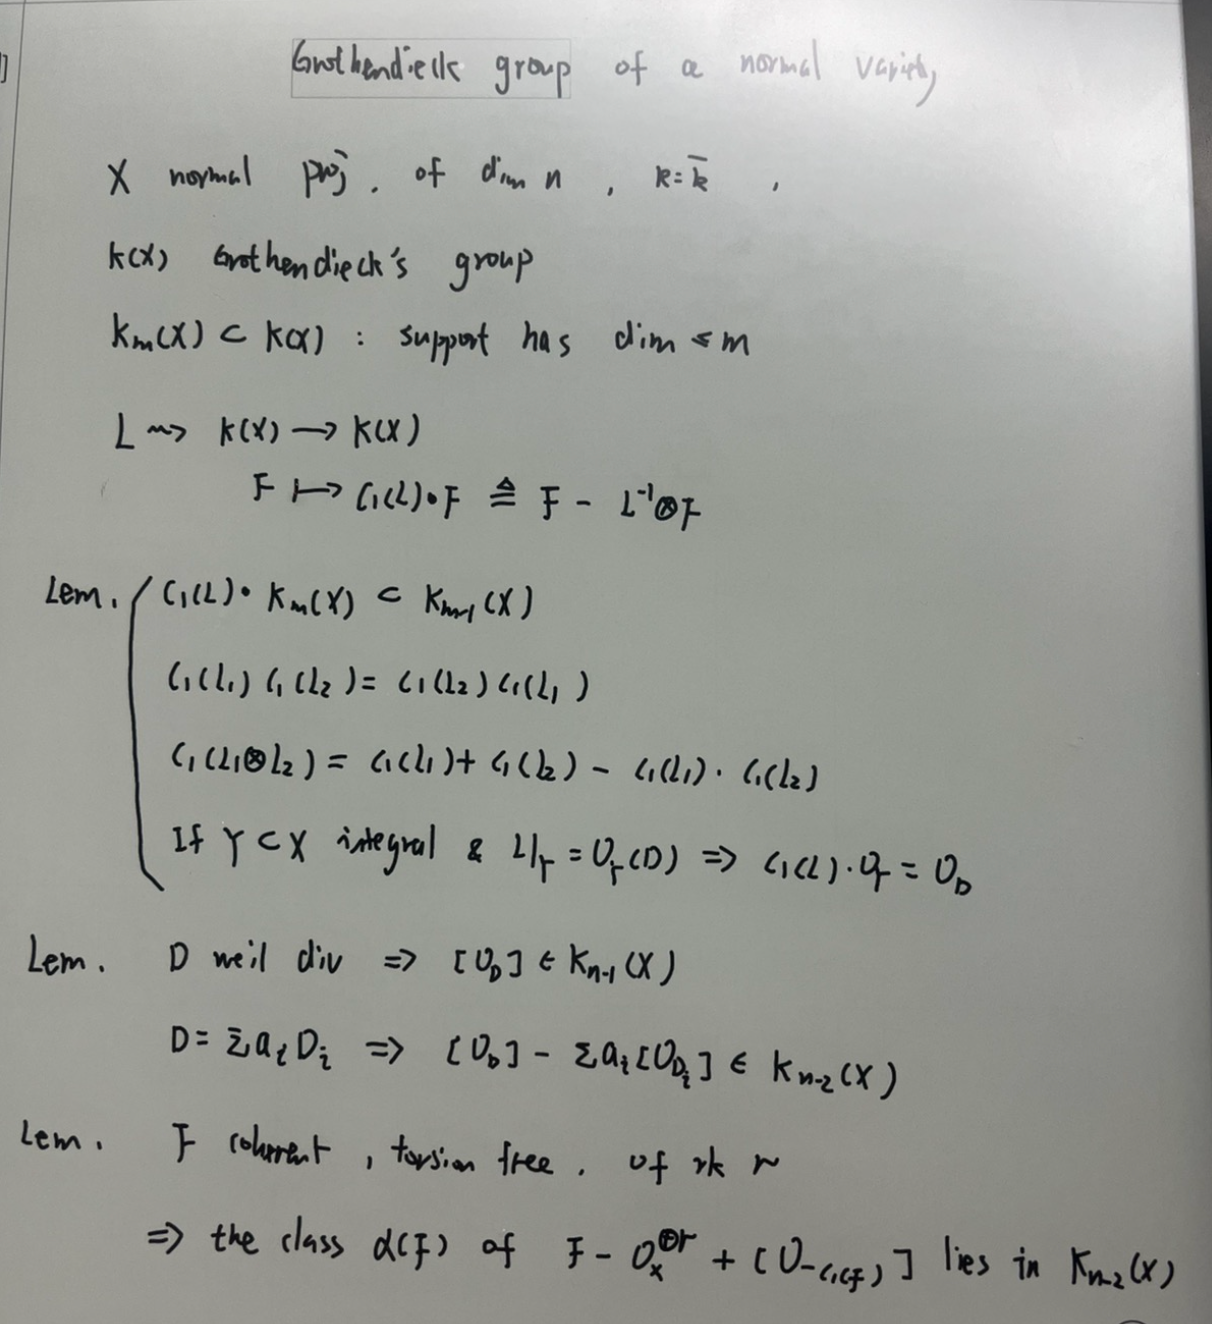 ]
Grothendieck group of a normal variety
X normal proj. of dim n, k=k̄,
K(X) Grothendieck's group
Kₘ(X) ⊂ K(X) : support has dim ≤ m
L ⇝ K(X) → K(X)
F ↦ C₁(L)·F ≜ F - L⁻¹⊗F
Lem. C₁(L)· Kₘ(X) ⊂ Kₘ₋₁(X)
C₁(L₁) C₁(L₂) = C₁(L₂) C₁(L₁)
C₁(L₁⊗L₂) = C₁(L₁) + C₁(L₂) - C₁(L₁)· C₁(L₂)
If Y ⊂ X integral & L|_Y = O_Y(D) ⇒ C₁(L)·O_Y = O_D
Lem. D weil div ⇒ [O_D] ∈ Kₙ₋₁(X)
D = Σaᵢ Dᵢ ⇒ [O_D] - Σaᵢ[O_{Dᵢ}] ∈ Kₙ₋₂(X)
Lem. F coherent, torsion free. of rk r
⇒ the class α(F) of F - O_X^{⊕r} + [O_{-C₁(F)}] lies in Kₙ₋₂(X)